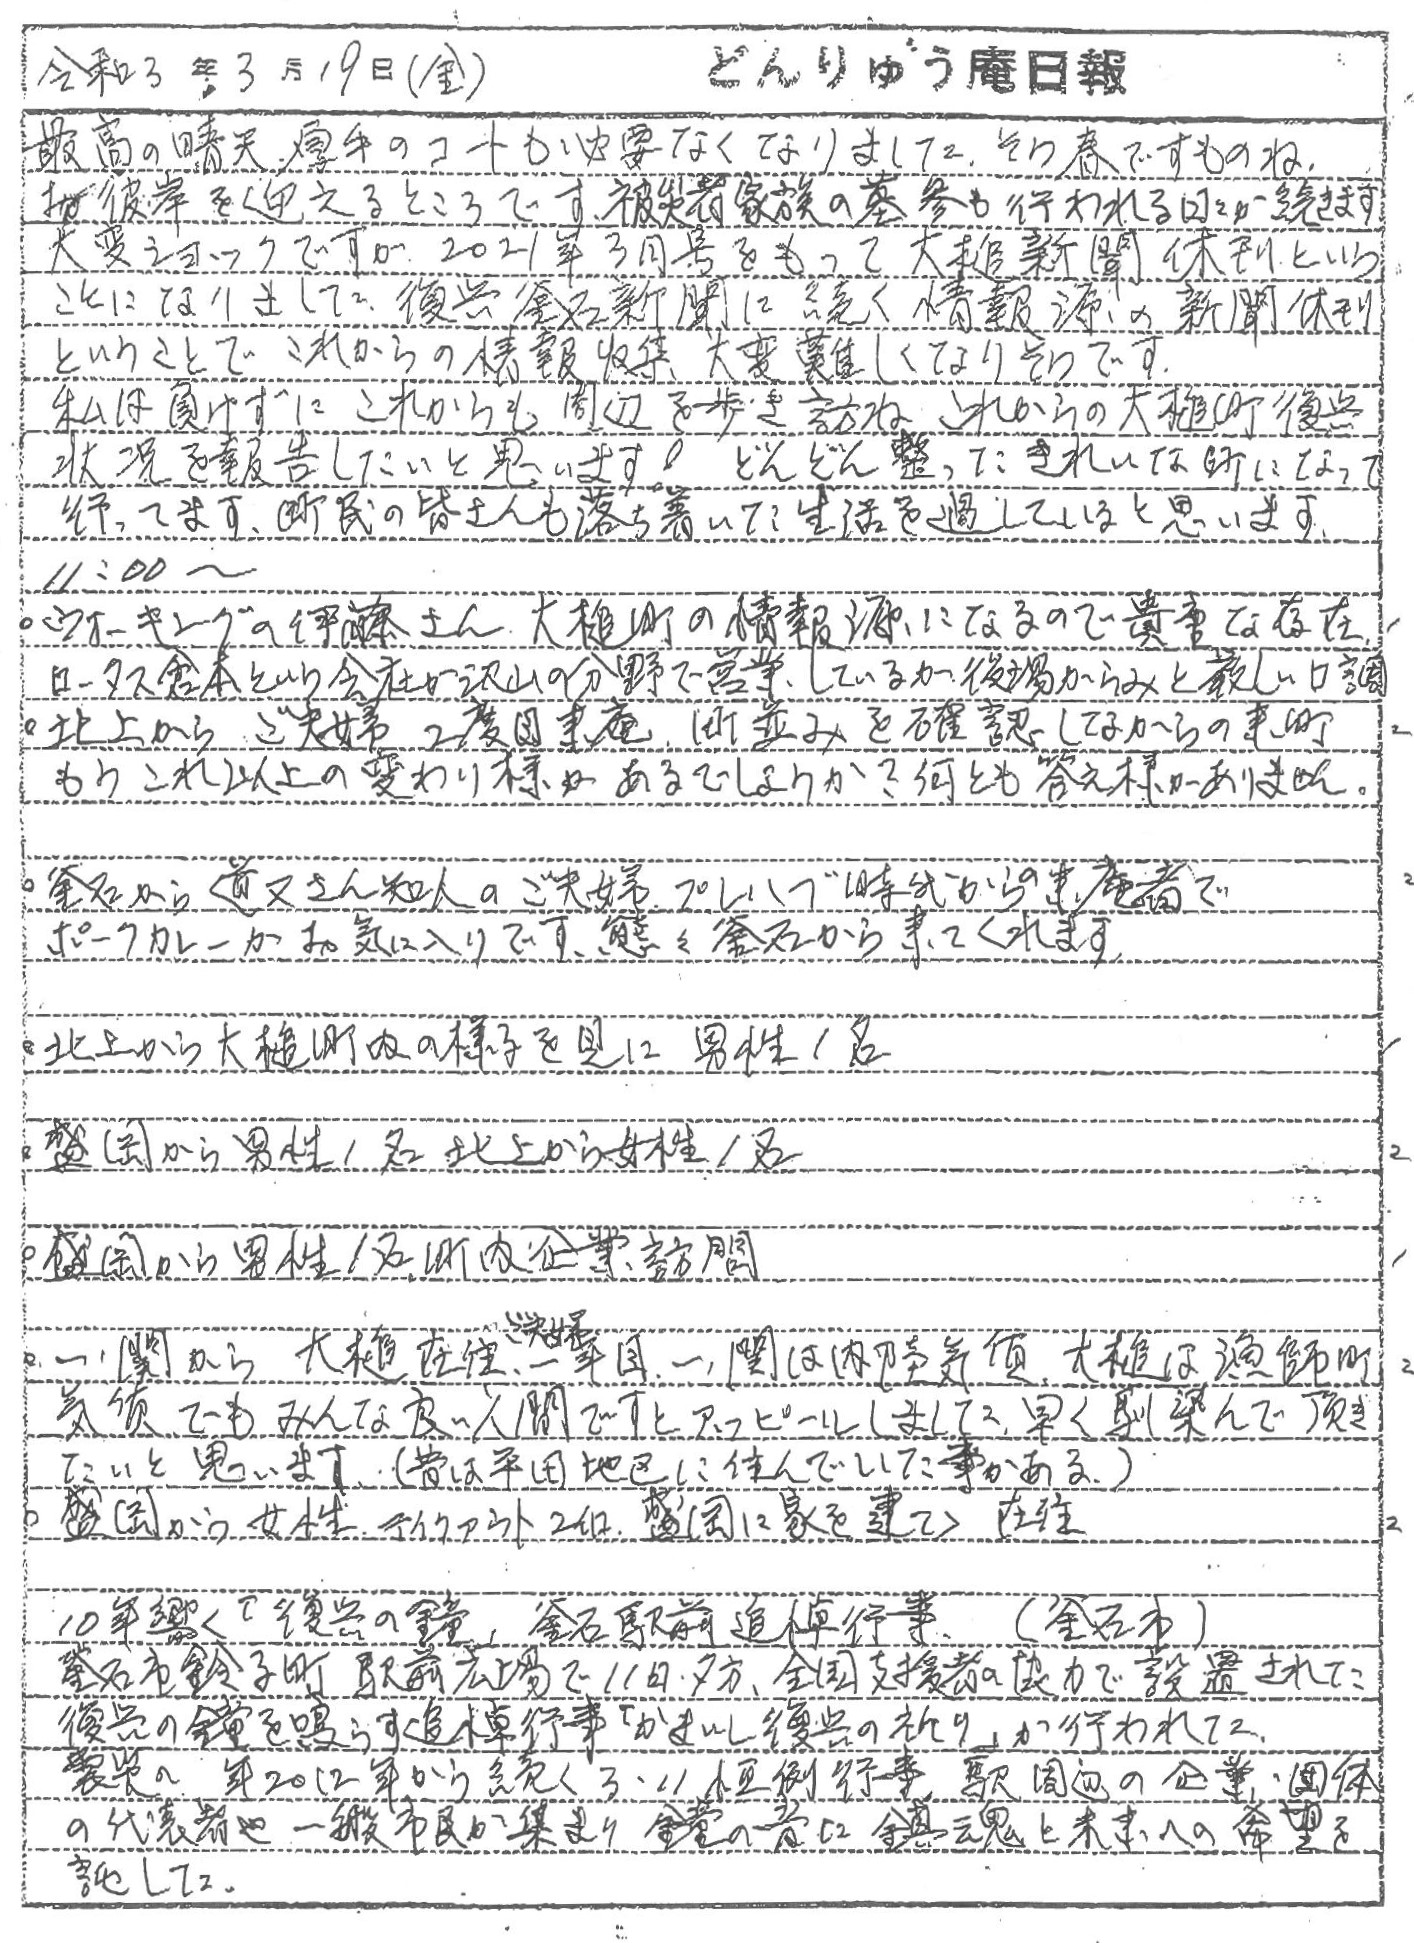 令和3年3月19日(金) どんりゅう庵日報
最高の晴天、厚手のコートも必要なくなりました。そう春ですものね。
お彼岸を迎えるところです、被災者家族の墓参も行われる日々が続きます
大変ショックですが、2021年3月号をもって大槌新聞休刊という
ことになりました。復興釜石新聞に続く情報源の新聞休刊
ということで これからの情報収集、大変難しくなりそうです。
私は負けずに これからも 周辺を歩き訪ね これからの大槌町復興
状況を報告したいと思います! どんどん整ったきれいな町になって
行ってます、町民の皆さんも落ち着いた生活を過していると思います。
11:00〜
○ウォーキングの伊藤さん 大槌町の情報源になるので貴重な存在、 1
ロータス倉本という会社が沢山の分野で営業しているが、後場からみと厳しい口調
○北上から ご夫婦 2度目来庵、町並みを確認しながらの来町 2
もう これ以上の変わり様があるでしょうか?何とも答え様がありません。
○釜石から 道又さん知人のご夫婦 プレハブ時代からの来庵者で 2
ポークカレーがお気に入りです、態々釜石から来てくれます。
○北上から大槌町内の様子を見に 男性1名 1
○盛岡から男性1名 北上から女性1名 2
○盛岡から男性1名、町内企業訪問 1
ご夫婦
○一関から 大槌在住、一年目、一関は内陸気質、大槌は漁師町 2
気質、でもみんな良い人間ですとアッピールしました、早く馴染んで頂き
たいと思います。(昔は平田地区に住んでいた事がある。)
○盛岡から女性 テイクアウト2ケ、盛岡に家を建てゝ 在住 2
10年響く「復興の鐘」釜石駅前追悼行事。 (釜石市)
釜石市鈴子町 駅前広場で11日夕方、全国支援者の協力で設置された
復興の鐘を鳴らす追悼行事「かまいし復興の祈り」が行われた。
震災の 年2012年から続く3・11恒例行事、駅周辺の企業・団体
の代表者や 一般市民が集まり 鐘の音に 鎮魂と未来への希望を
託した。